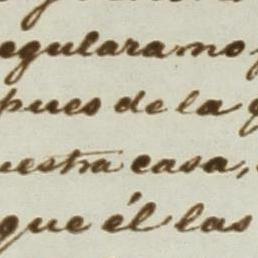 egulara no
pues de la
uestra casa,
que él las